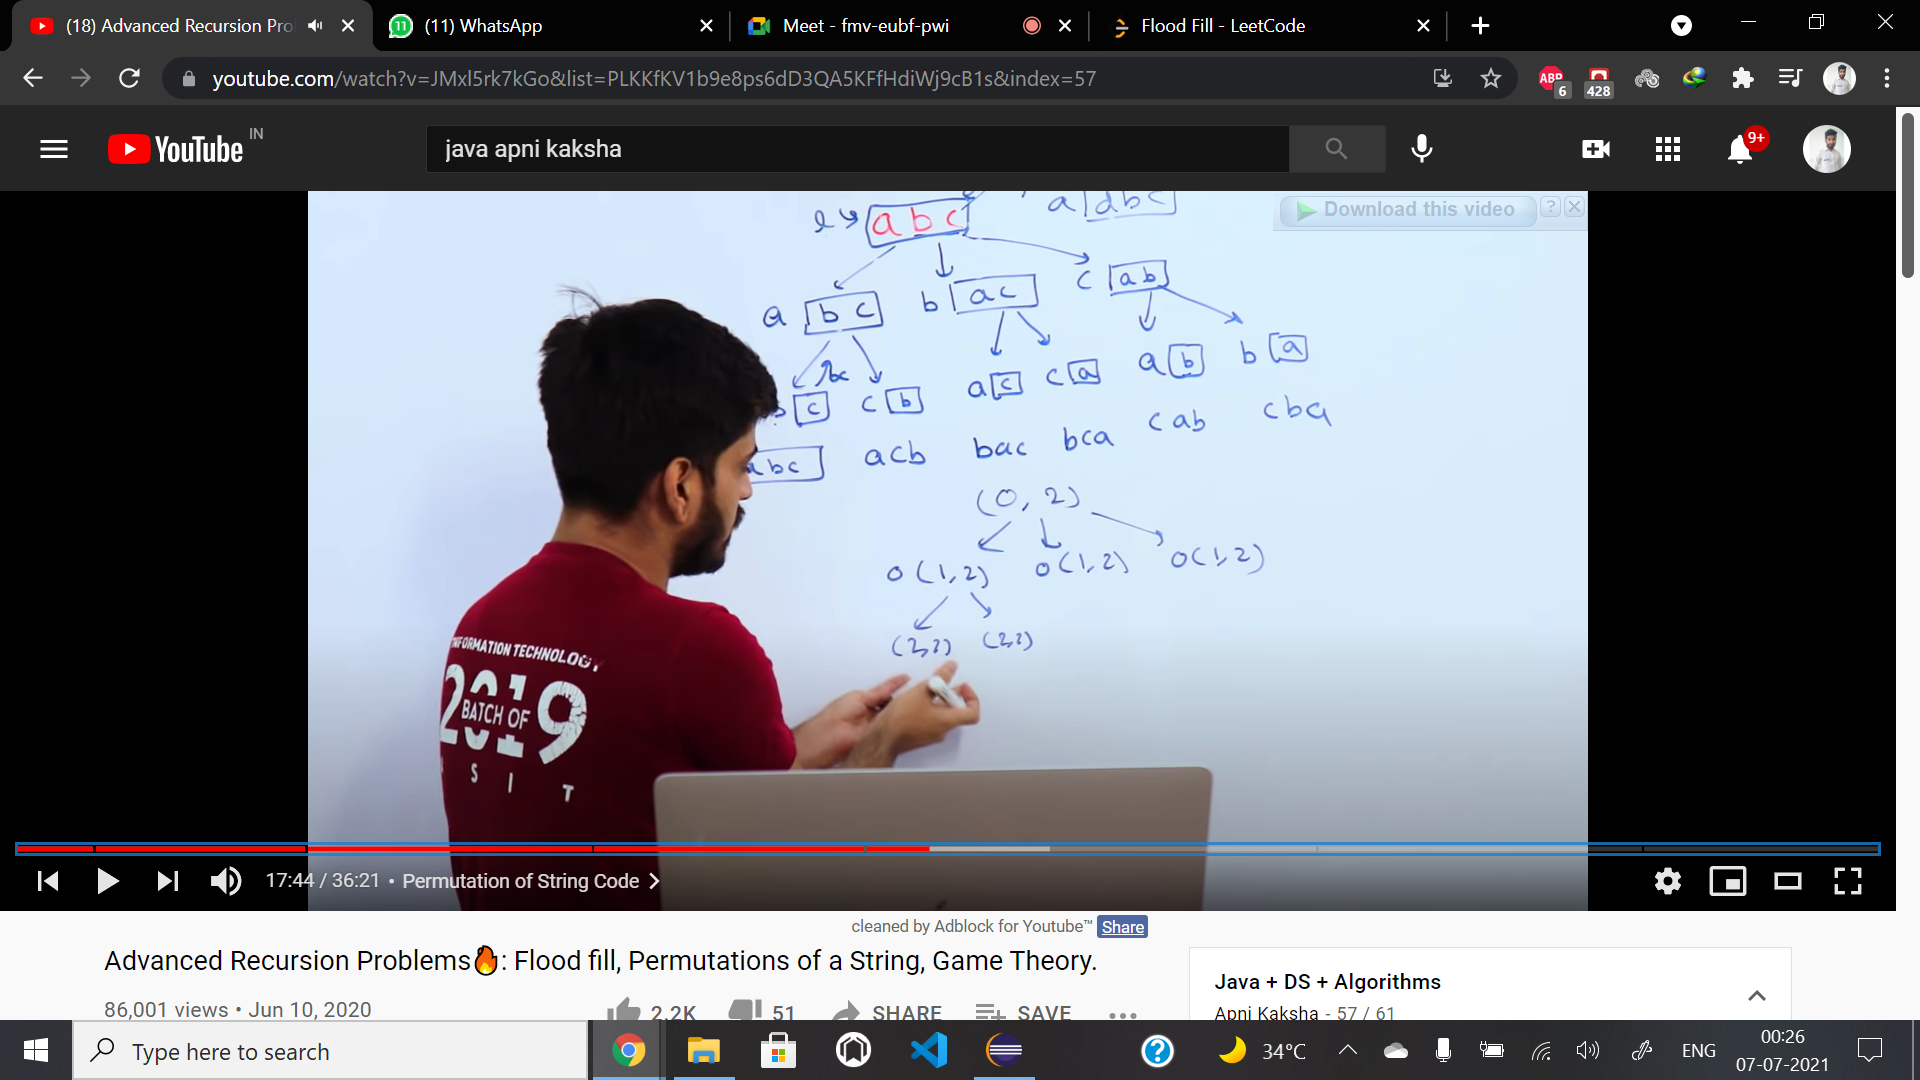 (18) Advanced Recursion Pro
(11) WhatsApp
Meet - fmv-eubf-pwi
Flood Fill - LeetCode
youtube.com/watch?v=JMxl5rk7kGo&list=PLKKfKV1b9e8ps6dD3QA5KFfHdiWj9cB1s&index=57
ABP
6
428
YouTube IN
java apni kaksha
9+
Download this video ? X
a b c
a b c
b a c
c a b
c
c b
a c
c a
a b
b a
abc
acb
bac
bca
cab
cba
(0, 2)
0 (1, 2)
0 (1, 2)
0 (1, 2)
(2,2)
(2,2)
INFORMATION TECHNOLOGY
2019
BATCH OF
S I T
17:44 / 36:21 • Permutation of String Code
cleaned by Adblock for Youtube™ Share
Advanced Recursion Problems🔥: Flood fill, Permutations of a String, Game Theory.
86,001 views • Jun 10, 2020
2.2K
51
SHARE
SAVE
Java + DS + Algorithms
Apni Kaksha - 57 / 61
Type here to search
34°C
ENG
00:26
07-07-2021